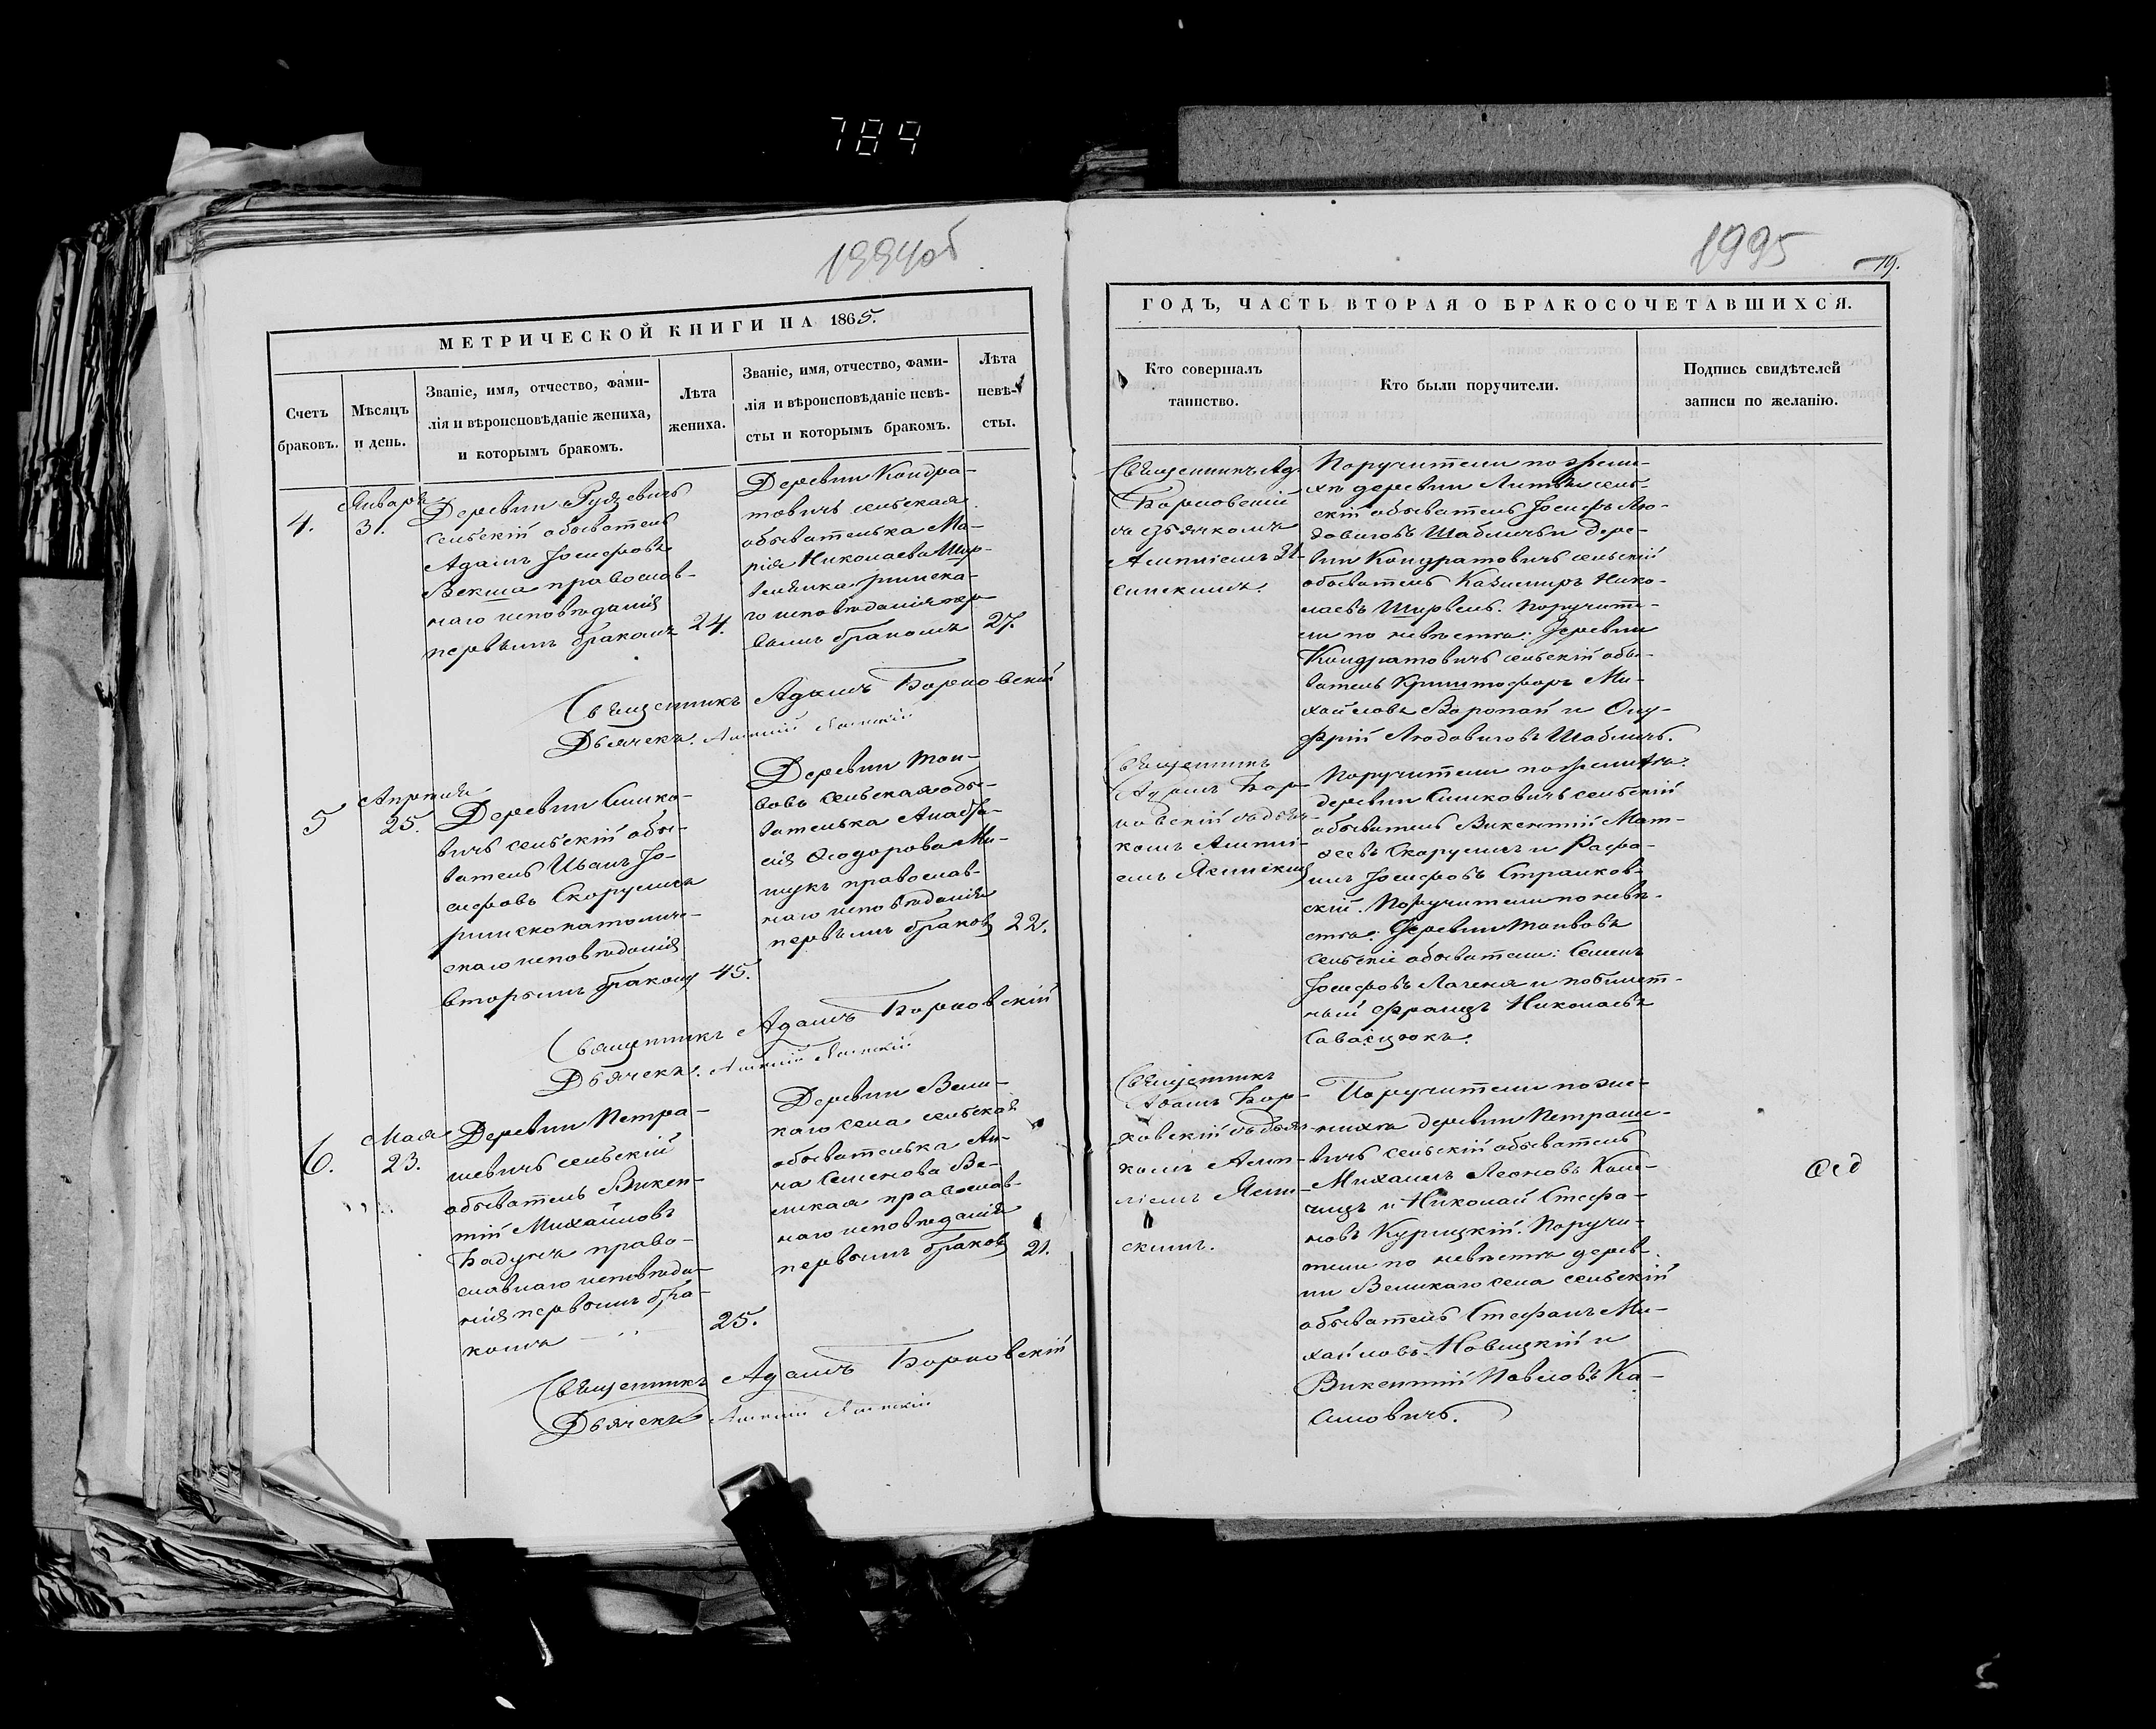 789
1994об
МЕТРИЧЕСКОЙ КНИГИ НА 1865.
Счетъ
браковъ.
Мѣсяцъ
и день.
Званіе, имя, отчество, фами-
лія и вѣроисповѣданіе жениха,
и которымъ бракомъ.
Лѣта
жениха.
Званіе, имя, отчество, фами-
лія и вѣроисповѣданіе невѣ-
сты и которымъ бракомъ.
Лѣта
невѣ-
сты.
4.
Января
31.
Деревни Рудзевичъ
сельскій обыватель
Адамъ Іосифовъ
Векша православ-
наго исповѣданія
первымъ бракомъ
24.
Деревни Кондра-
товичъ сельская
обывателька Ма-
рія Николаева Шир-
римска-
го исповѣданія пер-
вымъ бракомъ
27.
Священникъ Адамъ Борковскій
Дьячекъ
5
Апрѣля
25.
Деревни Симко-
вичъ сельскій обы-
ватель Иванъ Іо-
сифовъ Скорулисъ
римскокатоличе-
скаго исповѣданія
вторымъ бракомъ
45.
Деревни
сельская обы-
вателька
Ѳеодорова Ми-
щукъ православ-
наго исповѣданія
первымъ бракомъ
22.
Священникъ Адамъ Борковскій
Дьячекъ
6.
Мая
23.
Деревни Петра-
шевичъ сельскій
обыватель Викен-
тій Михайловъ
Бадунъ право-
славнаго исповѣда-
нія первымъ бра-
комъ
25.
Деревни Вели-
каго села сельская
обывателька Ан-
на Семенова Ве-
ликая православ-
наго исповѣданія
первымъ бракомъ
21.
Священникъ Адамъ Борковскій
Дьячекъ
1995
19.
ГОДЪ, ЧАСТЬ ВТОРАЯ О БРАКОСОЧЕТАВШИХСЯ.
Кто совершалъ
таинство.
Кто были поручители.
Подпись свидѣтелей
записи по желанію.
Священникъ Ад.
Борковскій
съ дьячкомъ
Поручители по жени-
хѣ деревни сель-
скій обыватель Іосифъ Лю-
довиговъ Шаблисъ и дере-
вни Кондратовичъ сельскій
обыватель Казимиръ Нико-
лаевъ Ширвель. Поручите-
ли по невѣстѣ: деревни
Кондратовичъ сельскій обы-
ватель Криштофоръ Ми-
хайловъ Воропай и Ону-
фрій Людовиговъ Шаблисъ.
Священникъ
Адамъ Бор-
ковскій съ дьяч-
комъ
Поручители по женихѣ
деревни Симковичъ сельскій
обыватель Викентій Мат-
ѳеевъ Скорулисъ и Рафа-
илъ Іосифовъ Странков-
скій. Поручители по невѣ-
стѣ: деревни
сельскіе обыватели: Семенъ
Іосифовъ и побилет-
ный Францъ Николаевъ
Священникъ
Адамъ Бор-
ковскій съ дьяч-
комъ
скимъ.
Поручители по же-
нихѣ деревни Петраше-
вичъ сельскій обыватель
Михаилъ Леоновъ
и Николай Стефа-
новъ Курицкій. Поручи-
тели по невѣстѣ дерев-
ни Великаго села сельскій
обыватель Стефанъ Ми-
хайловъ Новицкій и
Викентій Павловъ Ка-
симовичъ.